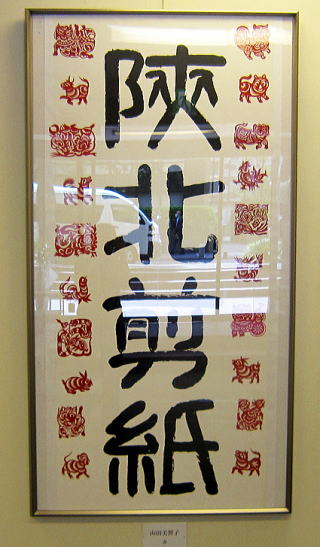 陝北剪紙
山田美智子